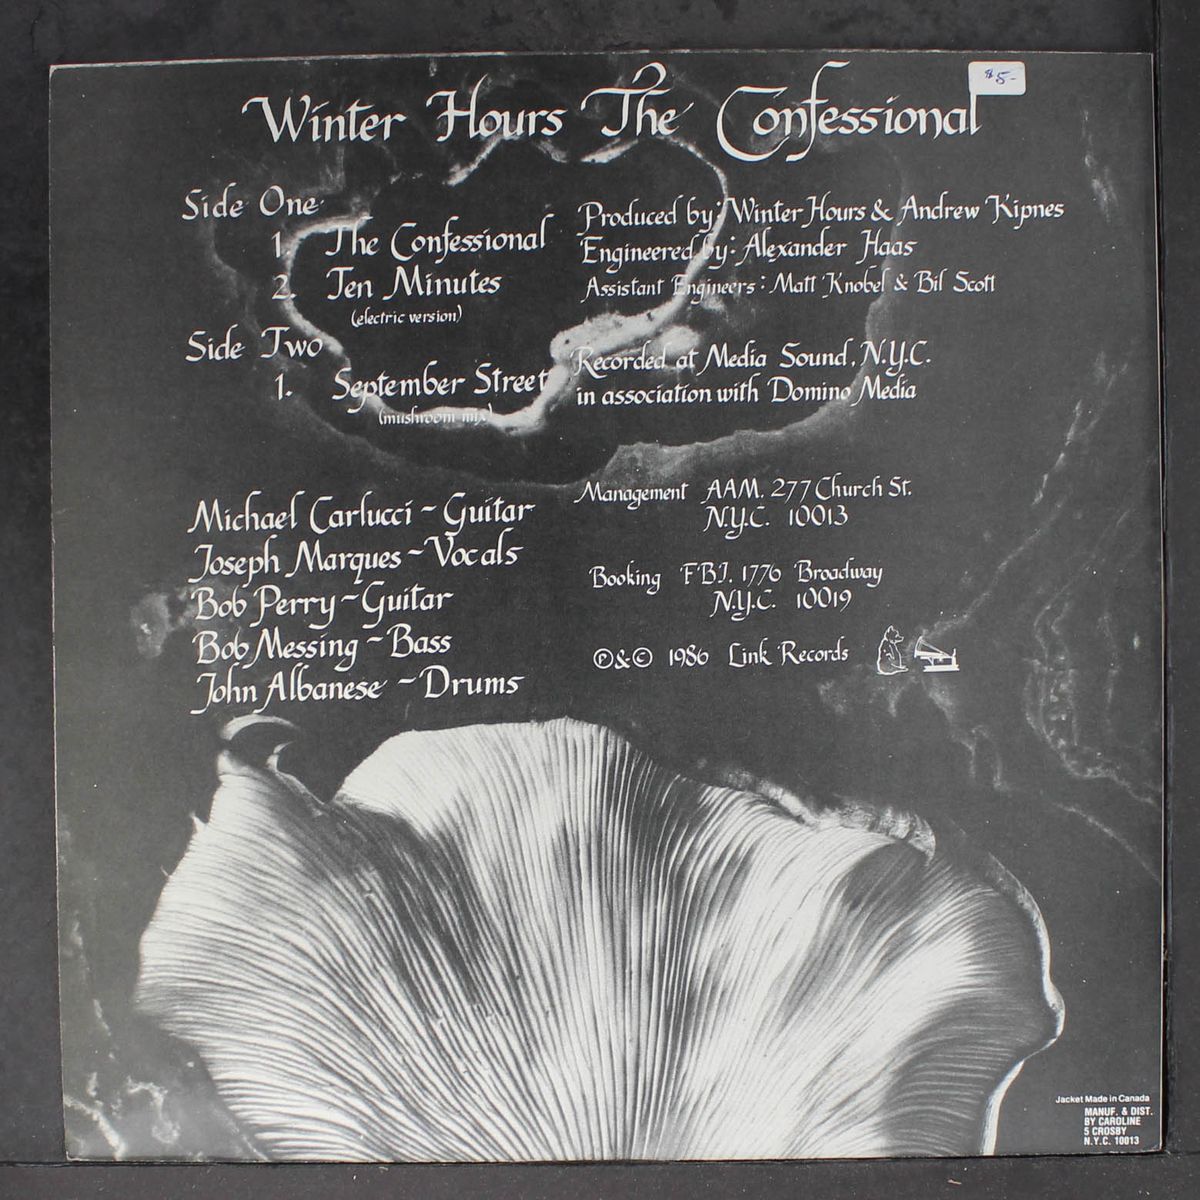 $5-
Winter Hours The Confessional
Side One
1. The Confessional
2. Ten Minutes
(electric version)
Side Two
1. September Street
(mushroom mix)
Produced by: Winter Hours & Andrew Kipnes
Engineered by: Alexander Haas
Assistant Engineers: Matt Knobel & Bil Scott
Recorded at Media Sound, N.Y.C.
in association with Domino Media
Michael Carlucci ~ Guitar
Joseph Marques ~ Vocals
Bob Perry ~ Guitar
Bob Messing ~ Bass
John Albanese ~ Drums
Management AAM. 277 Church St.
N.Y.C. 10013
Booking FBI. 1776 Broadway
N.Y.C. 10019
℗&© 1986 Link Records
Jacket Made in Canada
MANUF. & DIST.
BY CAROLINE
5 CROSBY
N.Y.C. 10013